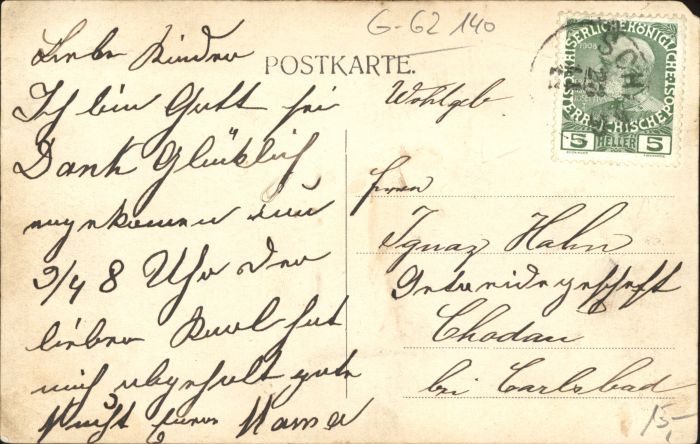 G-62 140
Liebe Kinder
Ich bin Gott sei
Dank Glücklich
angekomen um
3/4 8 Uhr der
lieber Karl hat
mich abgeholt gute
Nacht Eure Mama
POSTKARTE.
Wohlgeb
Herrn
Ignaz Hahn
Getreidegescheft
Chodau
bei Carlsbad
15,
KAISERLICHE KÖNIGLICHE ÖSTERREICHISCHE POST
1908
5 HELLER 5